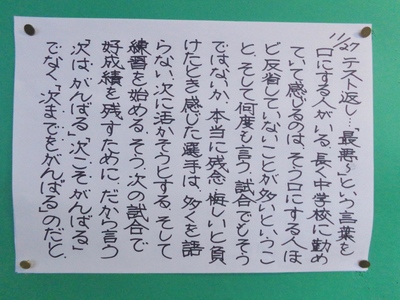 11/27 テスト返し…「最悪～」という言葉を
口にする人がいる。長く中学校に勤め
ていて感じるのは、そう口にする人ほ
ど反省していないことが多いというこ
と。そして何度も言う。試合でもそう
ではないか、本当に残念、悔しいと負
けたとき感じた選手は、多くを語
らない。次に活かそうとする。そして
練習を始める。そう、次の試合で
好成績を残すために。だから言う
「次は、がんばる」「次こそ、がんばる」
でなく、「次までをがんばる」のだと。